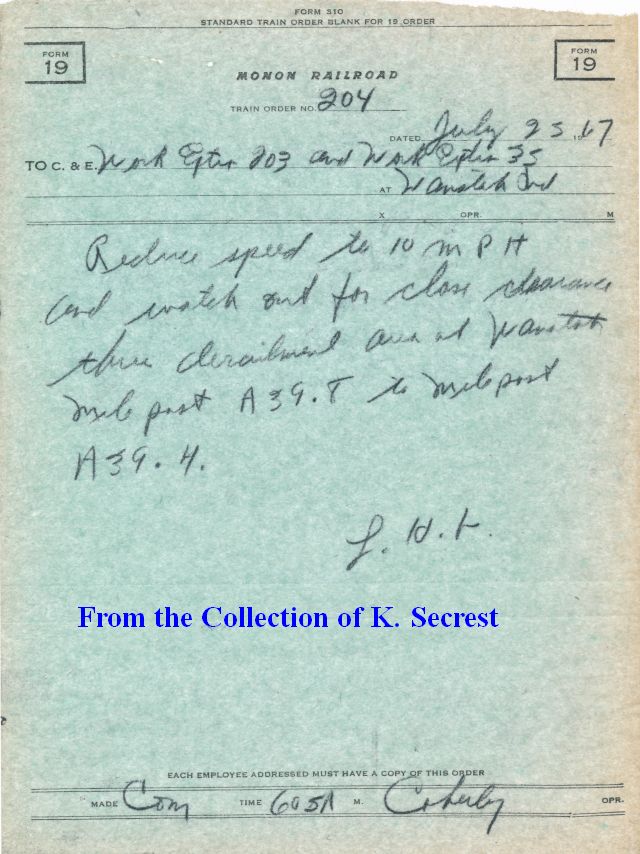 FORM 310
STANDARD TRAIN ORDER BLANK FOR 19 ORDER
FORM 19
FORM 19
MONON RAILROAD
TRAIN ORDER NO. 204
DATED July 25 1967
TO C. & E. Work Extra 203 and Work Extra 35
AT Wanatah Ind
X OPR. M
Reduce speed to 10 MPH
and watch out for close clearance
thru derailment area at Wanatah
Mile post A39.8 to Milepost
A39.4.
From the Collection of K. Secrest
EACH EMPLOYEE ADDRESSED MUST HAVE A COPY OF THIS ORDER
MADE Com TIME 605A M. OPR.